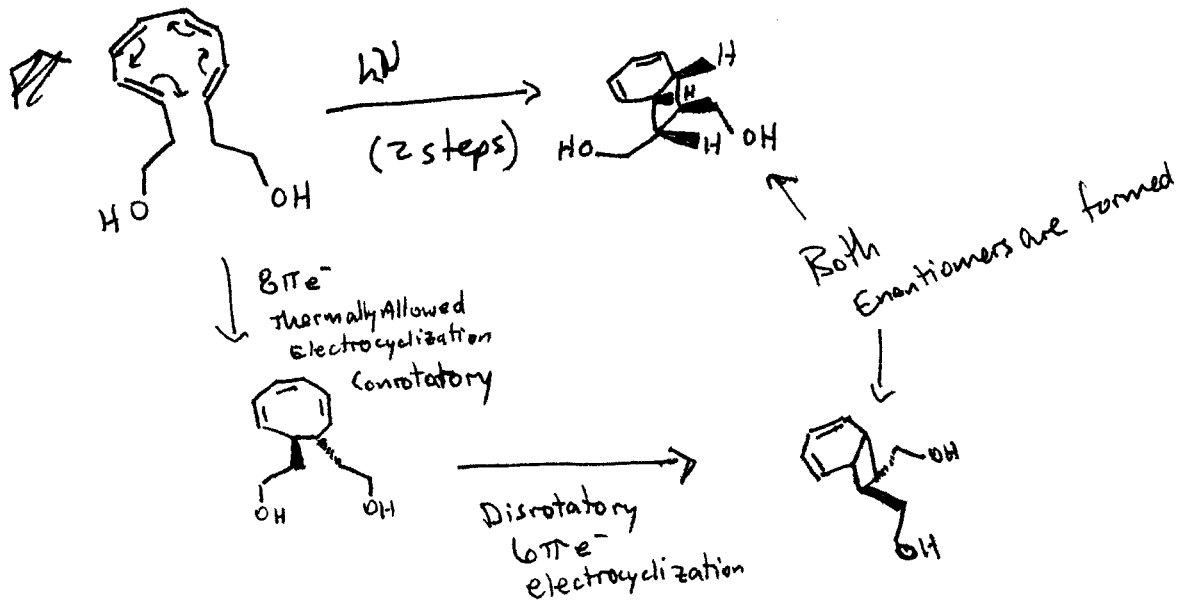 hν
(2 steps)
H
H
H
HO
OH
HO
OH
Both
Enantiomers are formed
8πe⁻
Thermally Allowed
Electrocyclization
Conrotatory
OH
OH
Disrotatory
6πe⁻
electrocyclization
OH
OH